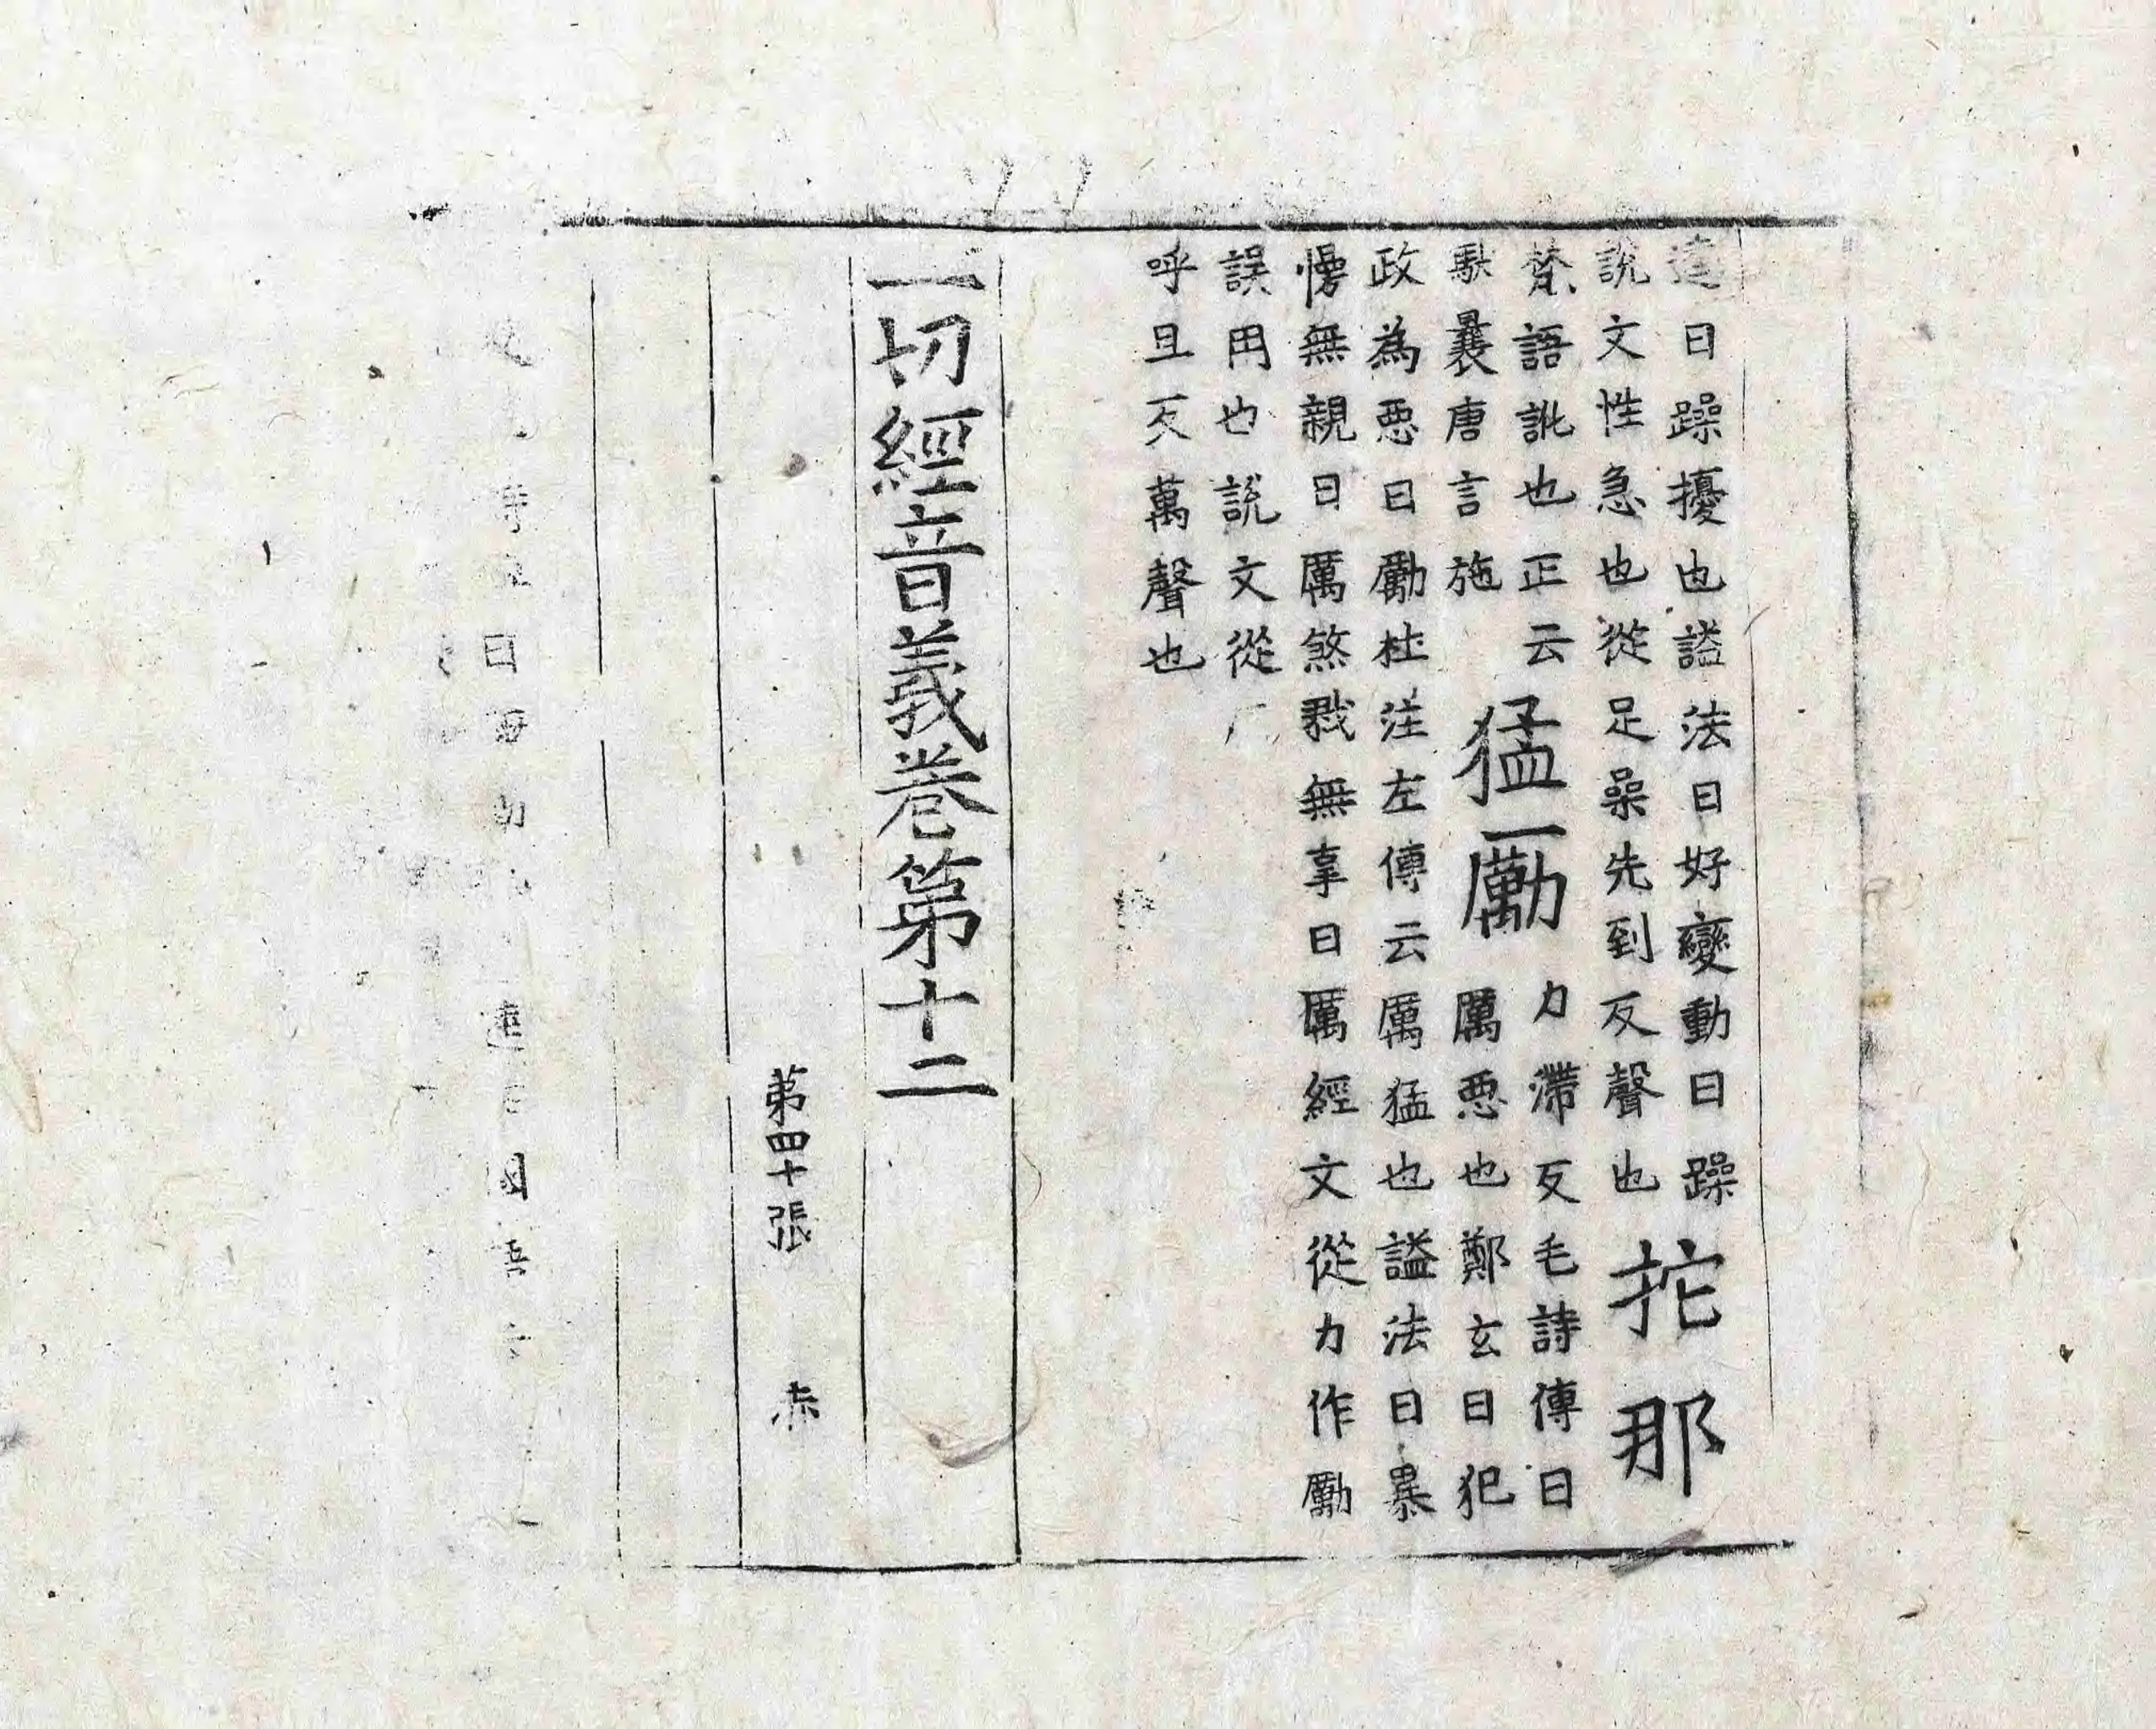 逵日躁擾也謚法曰好變動曰躁
說文性急也從足喿先到反聲也
拕那
梵語訛也正云
馱曩唐言施
猛勵
力滯反毛詩傳曰
厲惡也鄭玄曰犯
政為惡曰勵杜注左傳云厲猛也謚法曰暴
慢無親曰厲煞戮無辜曰厲經文從力作勵
誤用也說文從厂
呼旦反萬聲也
一切經音義卷第十二
第四十張 赤